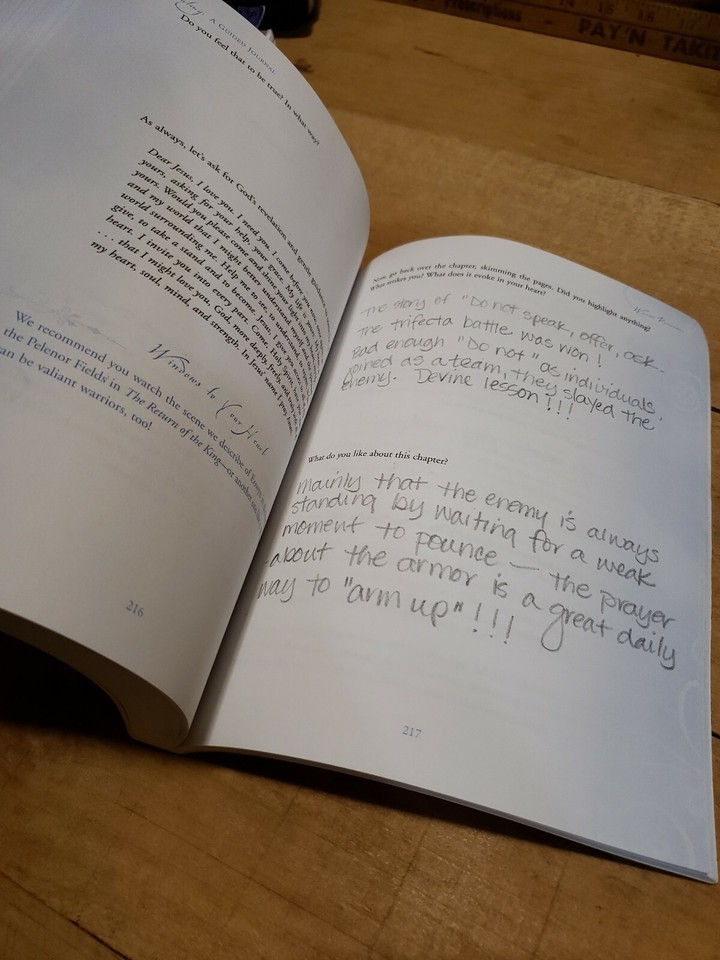 A GUIDED JOURNAL
Do you feel that to be true? In what way?
As always, let's ask for God's revelation and gentle
Dear Jesus, I love you. I need you. I come before you
yours, asking for your help, your grace. My life is
yours. Would you please come and shine your light
and my world that I might better understand
world surrounding me. Help me to see to understand
give, to take a stand and to become. Jesus, I give you
heart. I invite you into every part. Come, Holy Spirit,
. . . that I might love you, God more deeply, freely, and
my heart, soul, mind, and strength. In Jesus' name I pray
Windows to Your Heart
We recommend you watch the scene we describe of
the Pelenor Fields' in The Return of the King—or another
can be valiant warriors, too!
216
Now go back over the chapter, skimming the pages. Did you highlight anything?
What strikes you? What does it evoke in your heart?
The story of "Do not speak, offer, ask..
The trifecta battle was won!
Bad enough "Do not" as individuals
joined as a team, they slayed the
enemy. Devine lesson!!!
What do you like about this chapter?
mainly that the enemy is always
standing by waiting for a weak
moment to pounce — the prayer
about the armor is a great daily
way to "arm up"!!!
217
Prescriptions
14 15 16 17
PAY'N TAKI